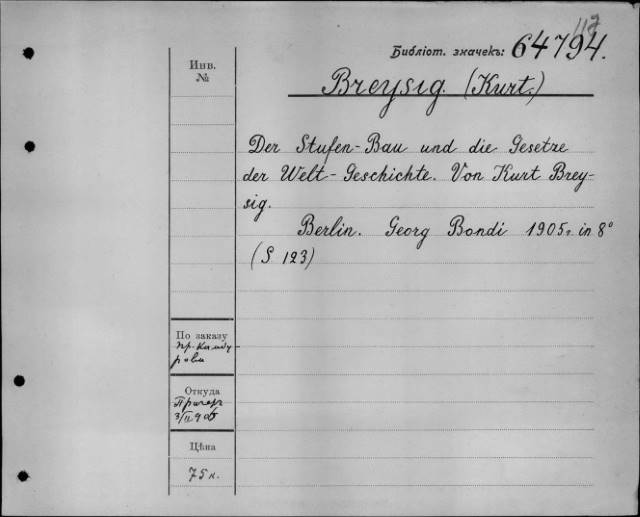 Библіот. значекъ: 64794.
Инв.
№
Breysig. (Kurt.)
Der Stufen-Bau und die Gesetze
der Welt-Geschichte. Von Kurt Brey-
sig.
Berlin. Georg Bondi 1905. in 8°
(S 123)
По заказу
Откуда
Цѣна
75 к.